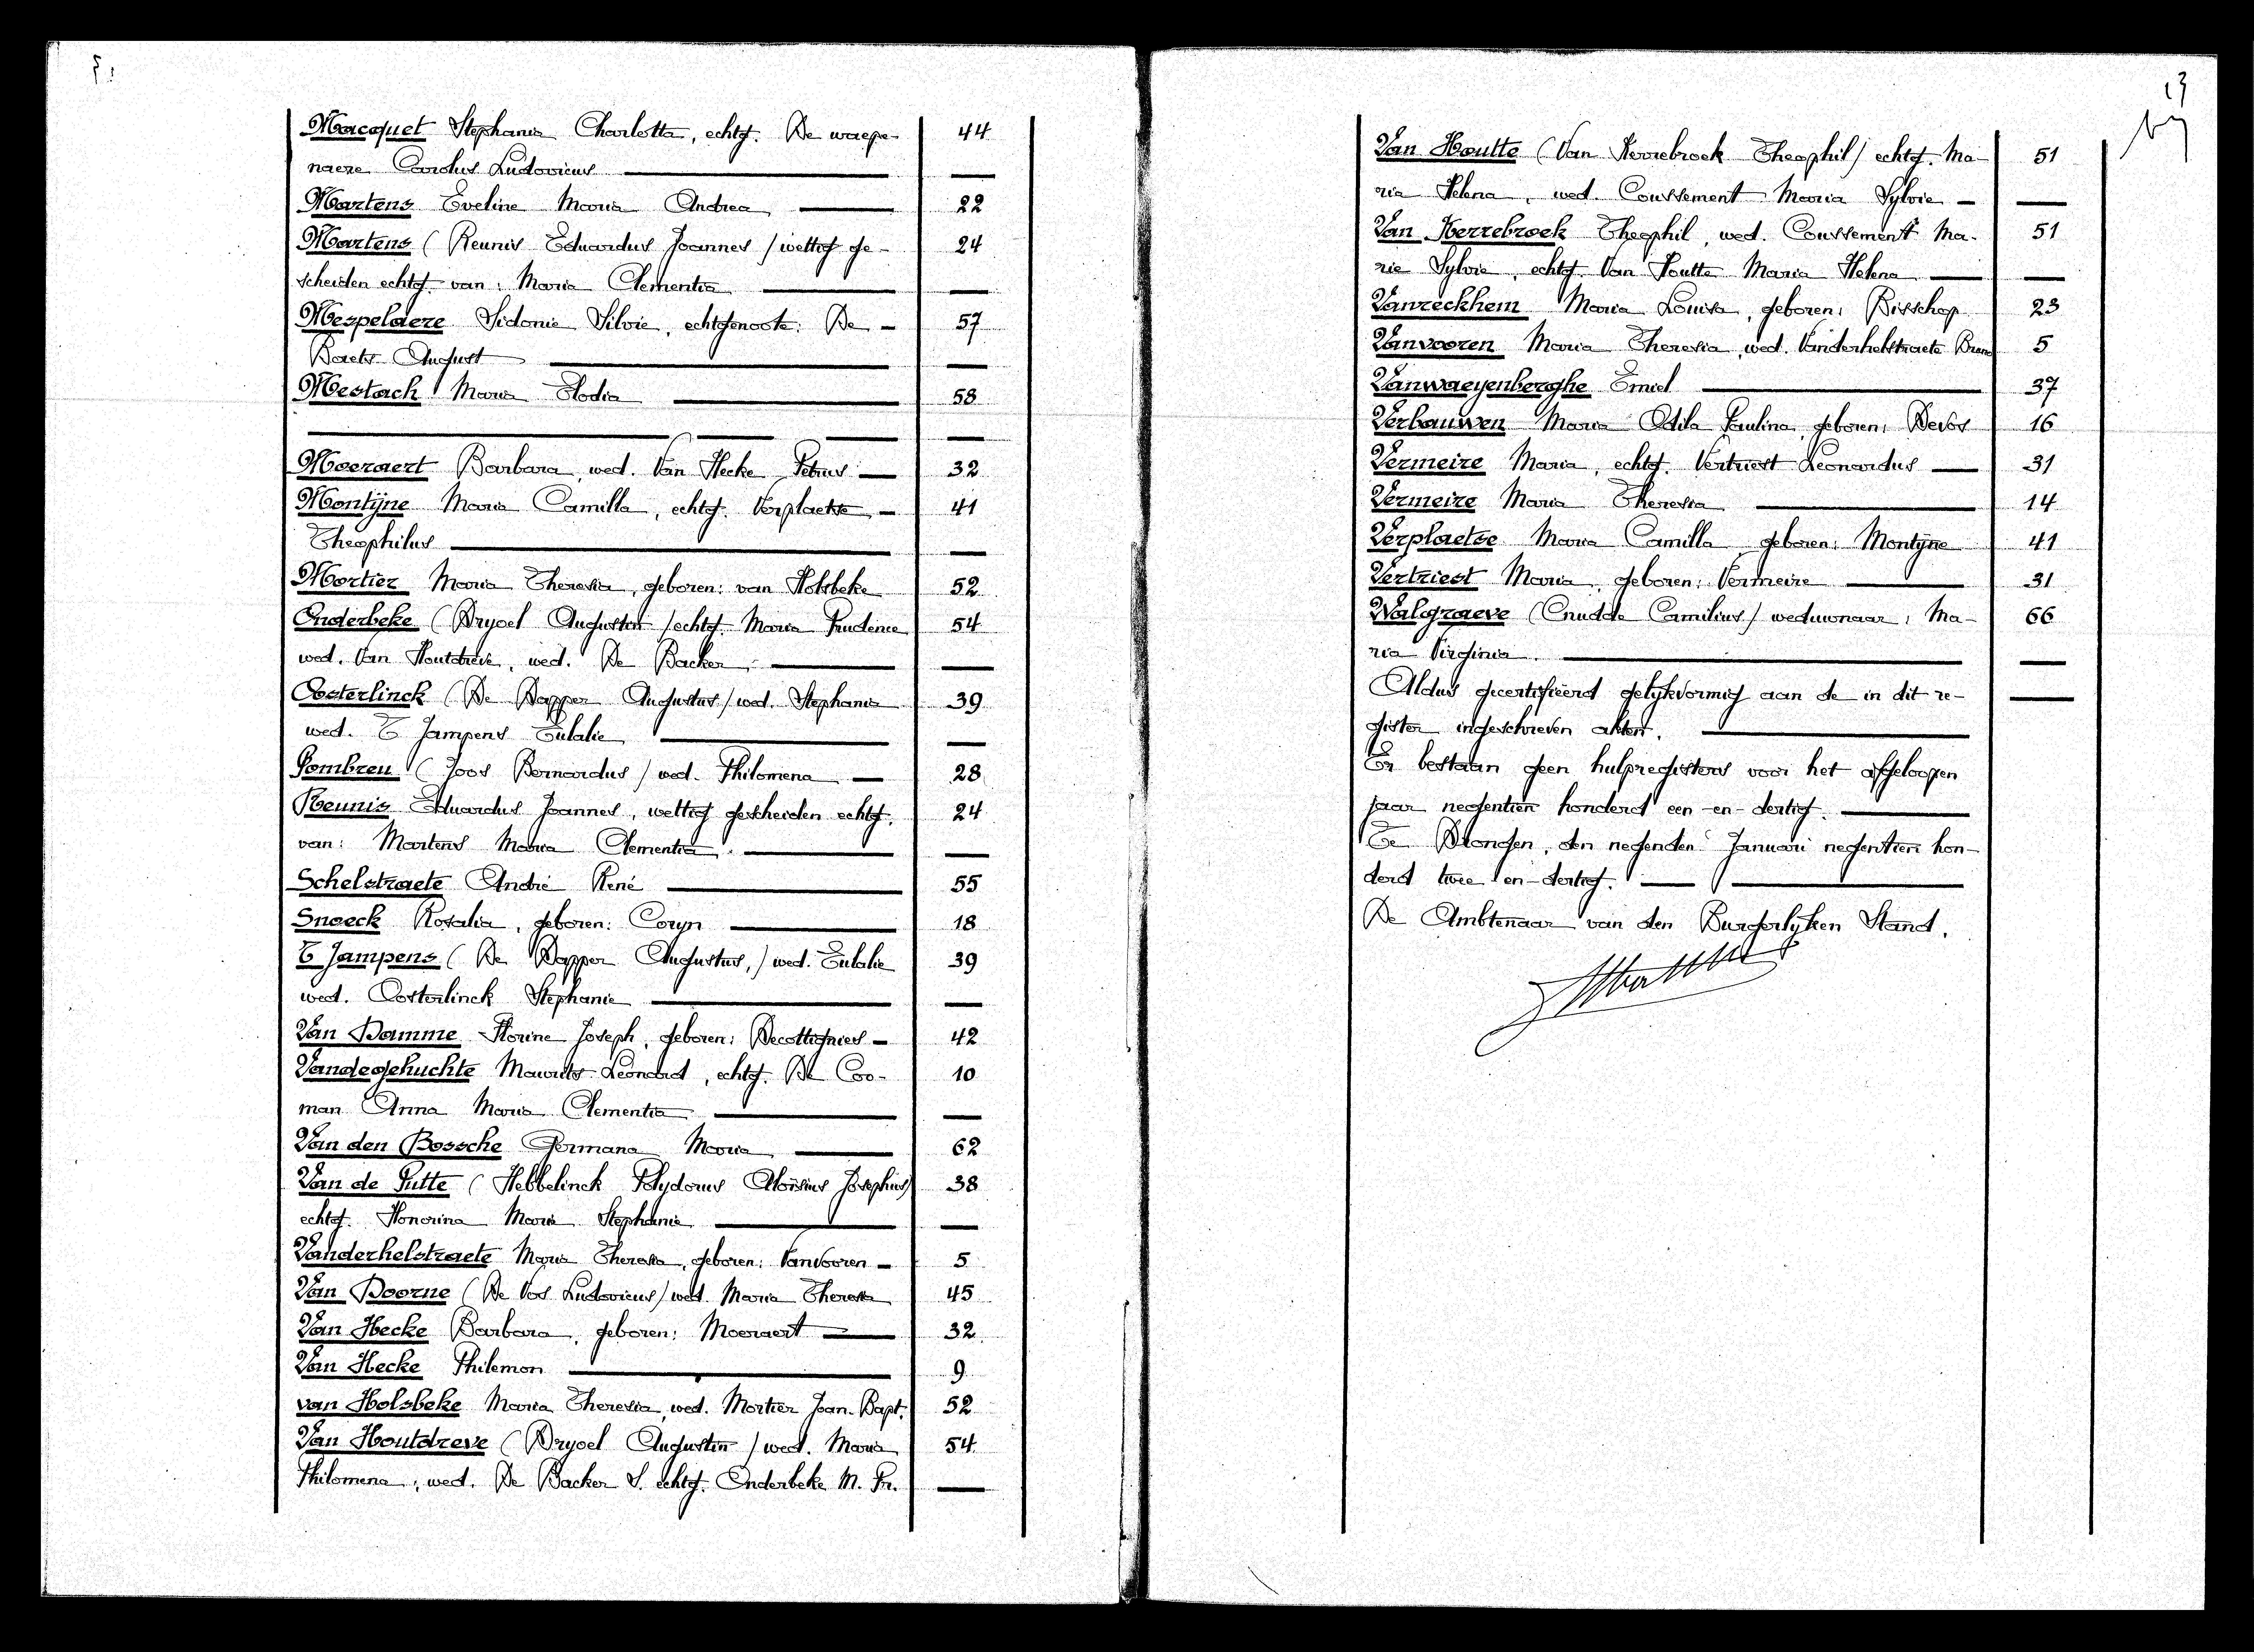 Macquet Stephania Charlotta, echtg. De waepe- 44
naere Carolus Ludovicus
Martens Eveline Maria Andrea 22
Martens (Reunis Eduardus Joannes / wettig ge- 24
scheiden echtg. van: Maria Clementia
Mespelaere Sidonie Silvie, echtgenoote: De - 57
Baets August
Mestach Maria Elodia 58
Moeraert Barbara, wed. Van Hecke Petrus 32
Montÿne Maria Camilla, echtg. Verplaetse 41
Theophilus
Mortier Maria Theresia, geboren: van Holsbeke 52
Onderbeke (Drysel Augustin / echtg. Maria Prudence 54
wed. Van Houtdreve, wed. De Backer
Oosterlinck (De Dapper Augustus / wed. Stephania 39
wed. T Jampens Eulalie
Pombreu (Joos Bernardus / wed. Philomena 28
Reunis Eduardus Joannes, wettig gescheiden echtg. 24
van: Martens Maria Clementia
Schelstraete André René 55
Snoeck Rosalia, geboren: Coryn 18
T Jampens (De Dapper Augustus, / wed. Eulalie 39
wed. Oosterlinck Stephanie
Van Damme Florine Joseph, geboren: Decottignies 42
Vandegehuchte Maurits Leonard, echtg. De Coo- 10
man Anna Maria Clementia
Van den Bossche Germana Maria 62
Van de Putte (Hebbelinck Polydorus Aloïsius Josephus) 38
echtg. Honorina Maria Stephanie
Vanderhelstraete Maria Theresia, geboren: Vanvooren 5
Van Doorne (De Vos Ludovicus / wed. Maria Theresia 45
Van Hecke Barbara, geboren: Moeraert 32
Van Hecke Philemon 9
van Holsbeke Maria Theresia, wed. Mortier Joan. Bapt. 52
Van Houtdreve (Drysel Augustin / wed. Maria 54
Philomena, wed. De Backer S. echtg. Onderbeke M. Pr.
13
Van Houtte (Van Kerrebroek Theophil / echtg. Ma- 51
ria Helena, wed. Coussement Maria Sylvie
Van Kerrebroek Theophil, wed. Coussement Ma- 51
rie Sylvie, echtg. Van Houtte Maria Helena
Vanreckhem Maria Louisa, geboren: Bisschop 23
Vanvooren Maria Theresia, wed. Vanderhelstraete Bruno 5
Vanwaeyenberghe Emiel 37
Verbauwen Maria Odila Paulina, geboren: Devos 16
Vermeire Maria, echtg. Vertriest Leonardus 31
Vermeire Maria Theresia 14
Verplaetse Maria Camilla geboren: Montÿne 41
Vertriest Maria, geboren: Vermeire 31
Walgraeve (Cnudde Camilius / weduwnaar: Ma- 66
ria Virginia
Aldus gecertifiëerd gelykvormig aan de in dit re-
gister ingeschreven akten.
Er bestaan geen hulpregisters voor het afgeloopen
jaar negentien honderd een-en-dertig.
Te Drongen, den negenden Januari negentien hon-
derd twee en-dertig.
De Ambtenaar van den Burgerlyken Stand,